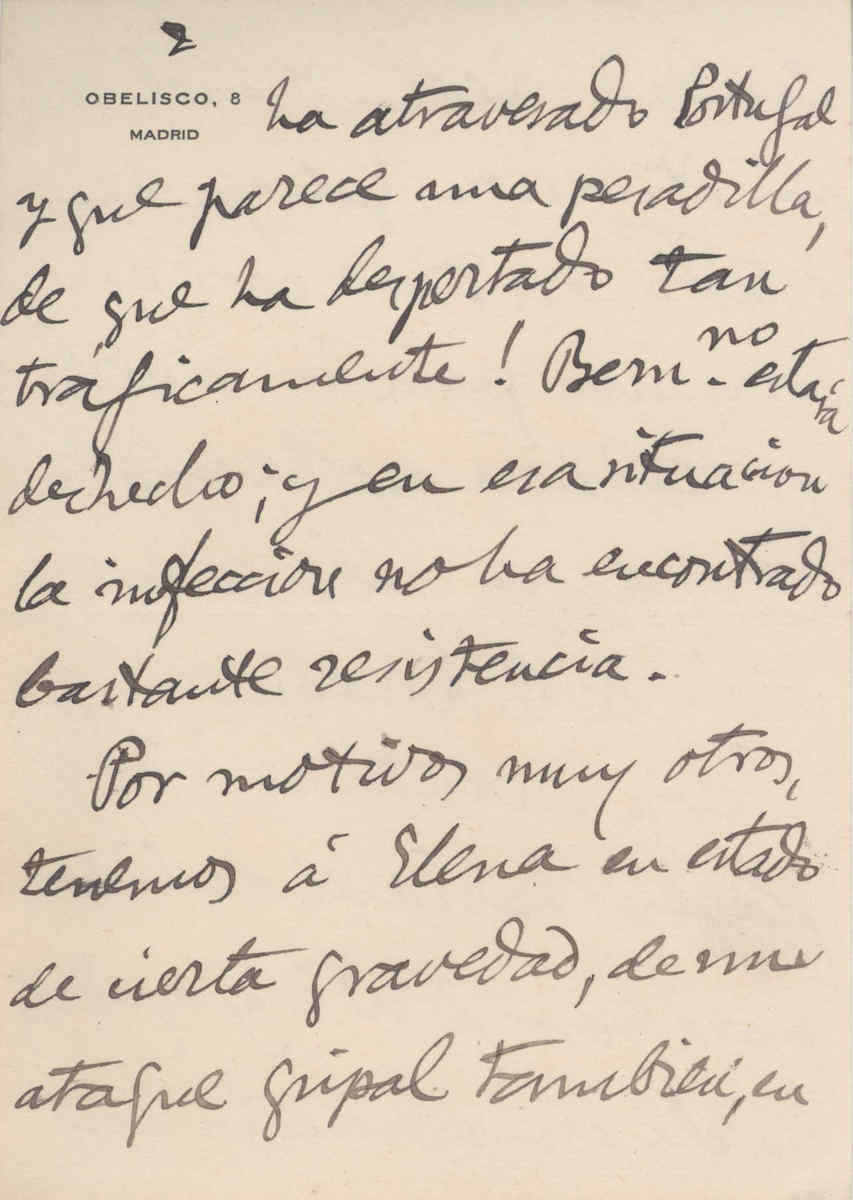 2
OBELISCO, 8
MADRID
ha atravesado Portugal
y que parece una pesadilla,
de que ha despertado tan
trágicamente! Bern.no estaría
deshecho; y en esa situacion
la infeccion no ha encontrado
bastante resistencia.
Por motivos muy otros,
tenemos á Elena en estado
de cierta gravedad, de un
ataque gripal tambien, en